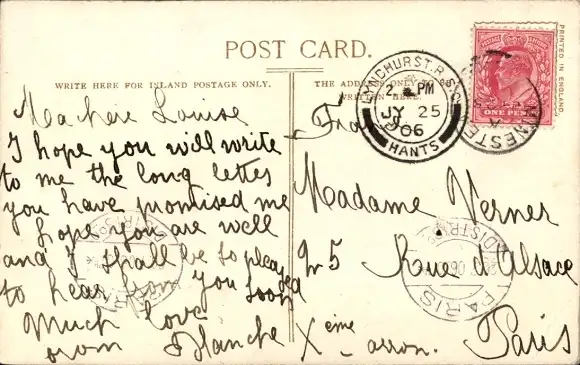 POST CARD.
PRINTED IN ENGLAND
WRITE HERE FOR INLAND POSTAGE ONLY.
THE ADDRESS ONLY TO BE
WRITTEN HERE.
POSTAGE
ONE PENNY
LYNDHURST. R. S.O.
2 PM
JY 25
06
HANTS
Ma chère Louise
I hope you will write
to me the long letter
you have promised me
hope you are well
and I shall be so pleased
to hear from you soon
Much love
from Blanche
France
Madame Verner
5 Rue d'Alsace
Xème arron. Paris
PARIS
DISTR
06
PARIS
DISTR